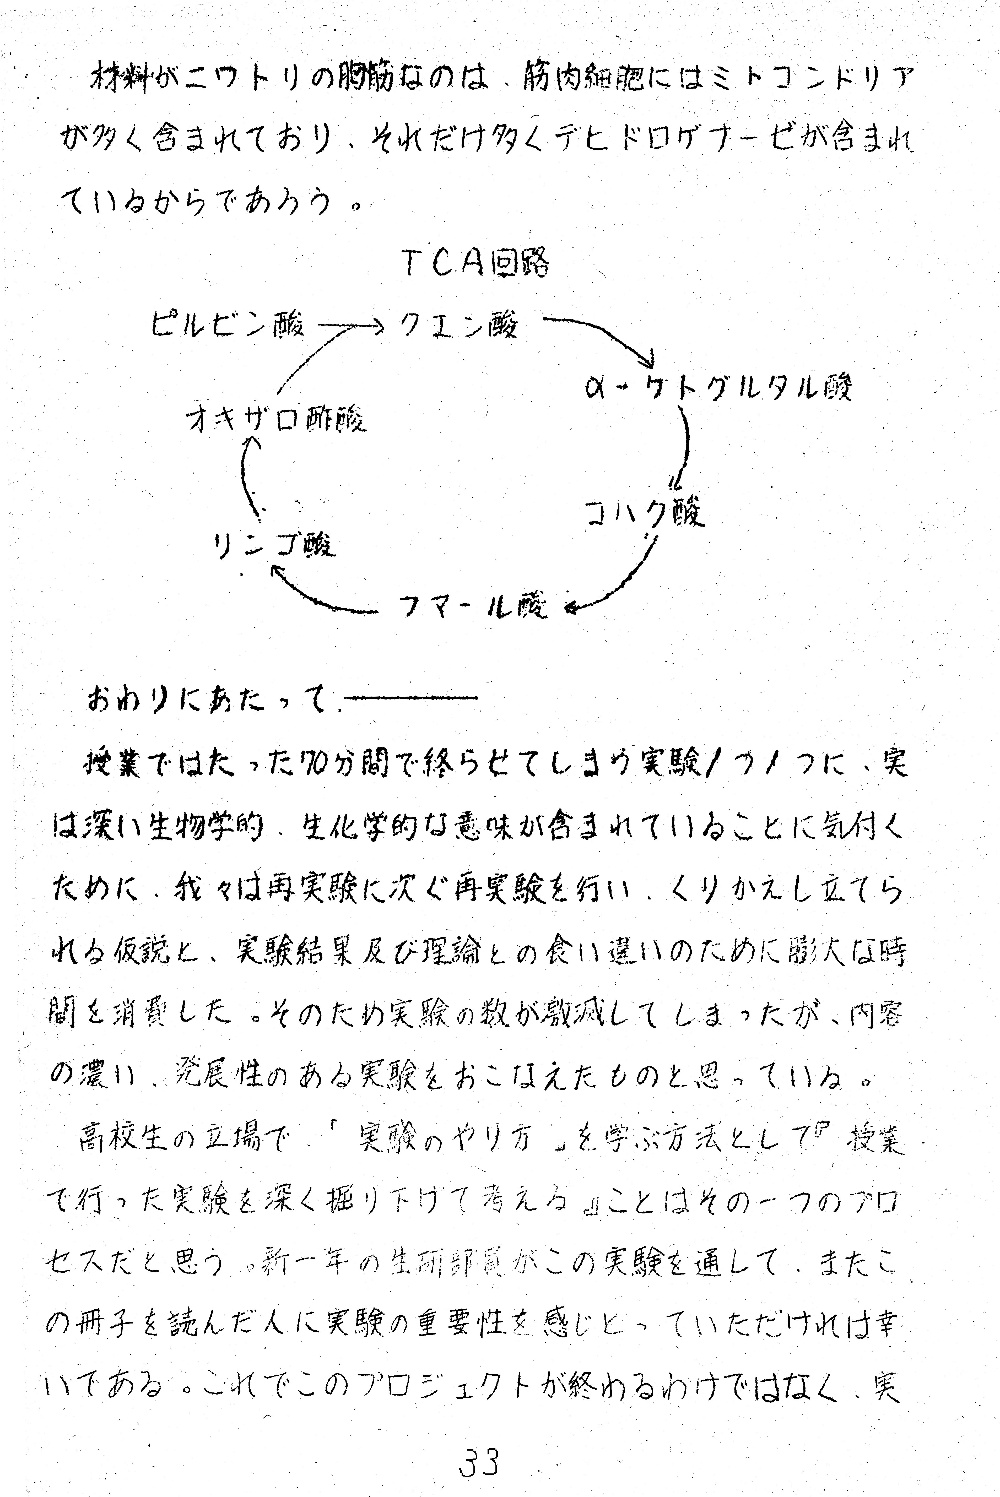 材料がニワトリの胸筋なのは、筋肉細胞にはミトコンドリア
が多く含まれており、それだけ多くデヒドロゲナーゼが含まれ
ているからであろう。
TCA回路
ピルビン酸 → クエン酸
α-ケトグルタル酸
オキザロ酢酸
コハク酸
リンゴ酸
フマール酸
おわりにあたって、────
授業ではたった70分間で終らせてしまう実験1つ1つに、実
は深い生物学的、生化学的な意味が含まれていることに気付く
ために、我々は再実験に次ぐ再実験を行い、くりかえし立てら
れる仮説と、実験結果及び理論との食い違いのために膨大な時
間を消費した。そのため実験の数が激減してしまったが、内容
の濃い、発展性のある実験をおこなえたものと思っている。
高校生の立場で、「実験のやり方」を学ぶ方法として『授業
で行った実験を深く掘り下げて考える』ことはその一つのプロ
セスだと思う。新一年の生研部員がこの実験を通して、またこ
の冊子を読んだ人に実験の重要性を感じとっていただければ幸
いである。これでこのプロジェクトが終わるわけではなく、実
33